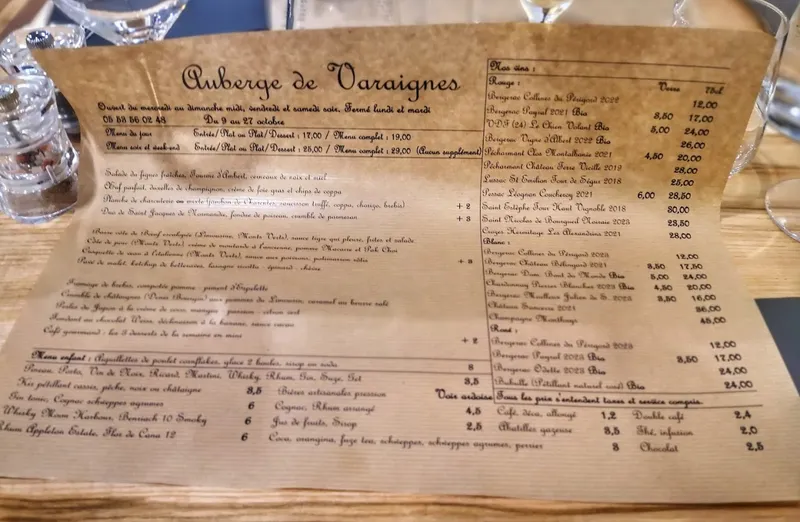 Auberge de Varaignes
Ouvert du mercredi au dimanche midi, vendredi et samedi soir, Fermé lundi et mardi
05 53 56 02 48 Du 9 au 27 octobre
Menu du jour Entrée/Plat ou Plat/Dessert : 17,00 / Menu complet : 19,00
Menu soir et week-end Entrée/Plat ou Plat/Dessert : 25,00 / Menu complet : 29,00 (Aucun supplément)
Salade de figues fraîches, Fourme d'Ambert, cerneaux de noix et miel
Œuf parfait, duxelles de champignon, crème de foie gras et chips de coppa
Planche de charcuterie saucisson truffé, coppa, chorizo, + 2
Duo de Saint Jacques de Normandie, fondue de poireau, crumble de parmesan + 3
Pavé de Bœuf (Limousine, Monts Verts) sauce tigre qui pleure, frites et salade
Côte de porc (Monts Verts) crème de moutarde à l'ancienne, pomme Macaire et Pak Choï
(Monts Verts), sauce aux poivrons, potimarron rôtis + 3
ketchup de betteraves, épinard - chèvre
Fromage de brebis, compotée pomme - piment d'Espelette
Crumble de châtaignes aux pommes du Limousin, caramel au beurre salé
Perles du Japon à la crème de coco, mangue - passion - citron vert
Fondant au chocolat à la banane, sans sucre
Café gourmand : les 3 desserts de la semaine en mini + 2
Menu enfant : Aiguillettes de poulet cornflakes, glace 2 boules, sirop ou soda 8
Porto, Vin de Noix, Ricard, Martini, Whisky, Rhum, Gin, Suze, Get 3,5
Kir pétillant cassis, pêche, noix ou châtaigne 3,5 Bières artisanales pression Voir ardoise
Gin tonic, Cognac schweppes agrumes 6 Cognac, Rhum arrangé 4,5
Whisky Moon Harbour, Benriach 10 Smoky 6 Jus de fruits, Sirop 2,5
Rhum Appleton Estate, Flor de Cana 12 6 Coca, orangina, fuze tea, schweppes, schweppes agrumes, perrier 3
Nos vins :
Rouge : Verre 75cl
Bergerac Collines du Périgord 2022 12,00
Bergerac Payral 2021 Bio 3,50 17,00
VDF (24) Le Chien Volant Bio 5,00 24,00
Bergerac Vigne d'Albert 2022 Bio 26,00
Pécharmant Clos Montalbanie 2021 4,50 20,00
Pécharmant Château Terre Vieille 2019 28,00
Lussac St Emilion Tour de Ségur 2018 25,00
Pessac Léognan Coucheroy 2021 6,00 28,50
Saint Estèphe Tour Haut Vignoble 2018 30,00
Saint Nicolas de Bourgueil 2023 23,50
Crozes Hermitage Les Alexandrins 2021 28,00
Blanc :
Bergerac Collines du Périgord 2023 12,00
Bergerac Château Bélingard 2021 3,50 17,50
Bergerac Donc Bout du Monde Bio 5,00 24,00
Chardonnay Pierres Blanches 2023 Bio 4,50 20,00
Bergerac Moelleux Julien de S. 2023 3,50 16,00
Château Sancerre 2021 36,00
Champagne Montbazy 45,00
Rosé :
Bergerac Collines du Périgord 2023 12,00
Bergerac Payral 2023 Bio 3,50 17,00
Bergerac Odette 2023 Bio 24,00
Bubulle (Pétillant naturel rosé) Bio 24,00
Tous les prix s'entendent taxes et service compris.
Café, déca, allongé 1,2 Double café 2,4
Abatilles gazeuse 3,5 Thé, infusion 2,0
Chocolat 2,5